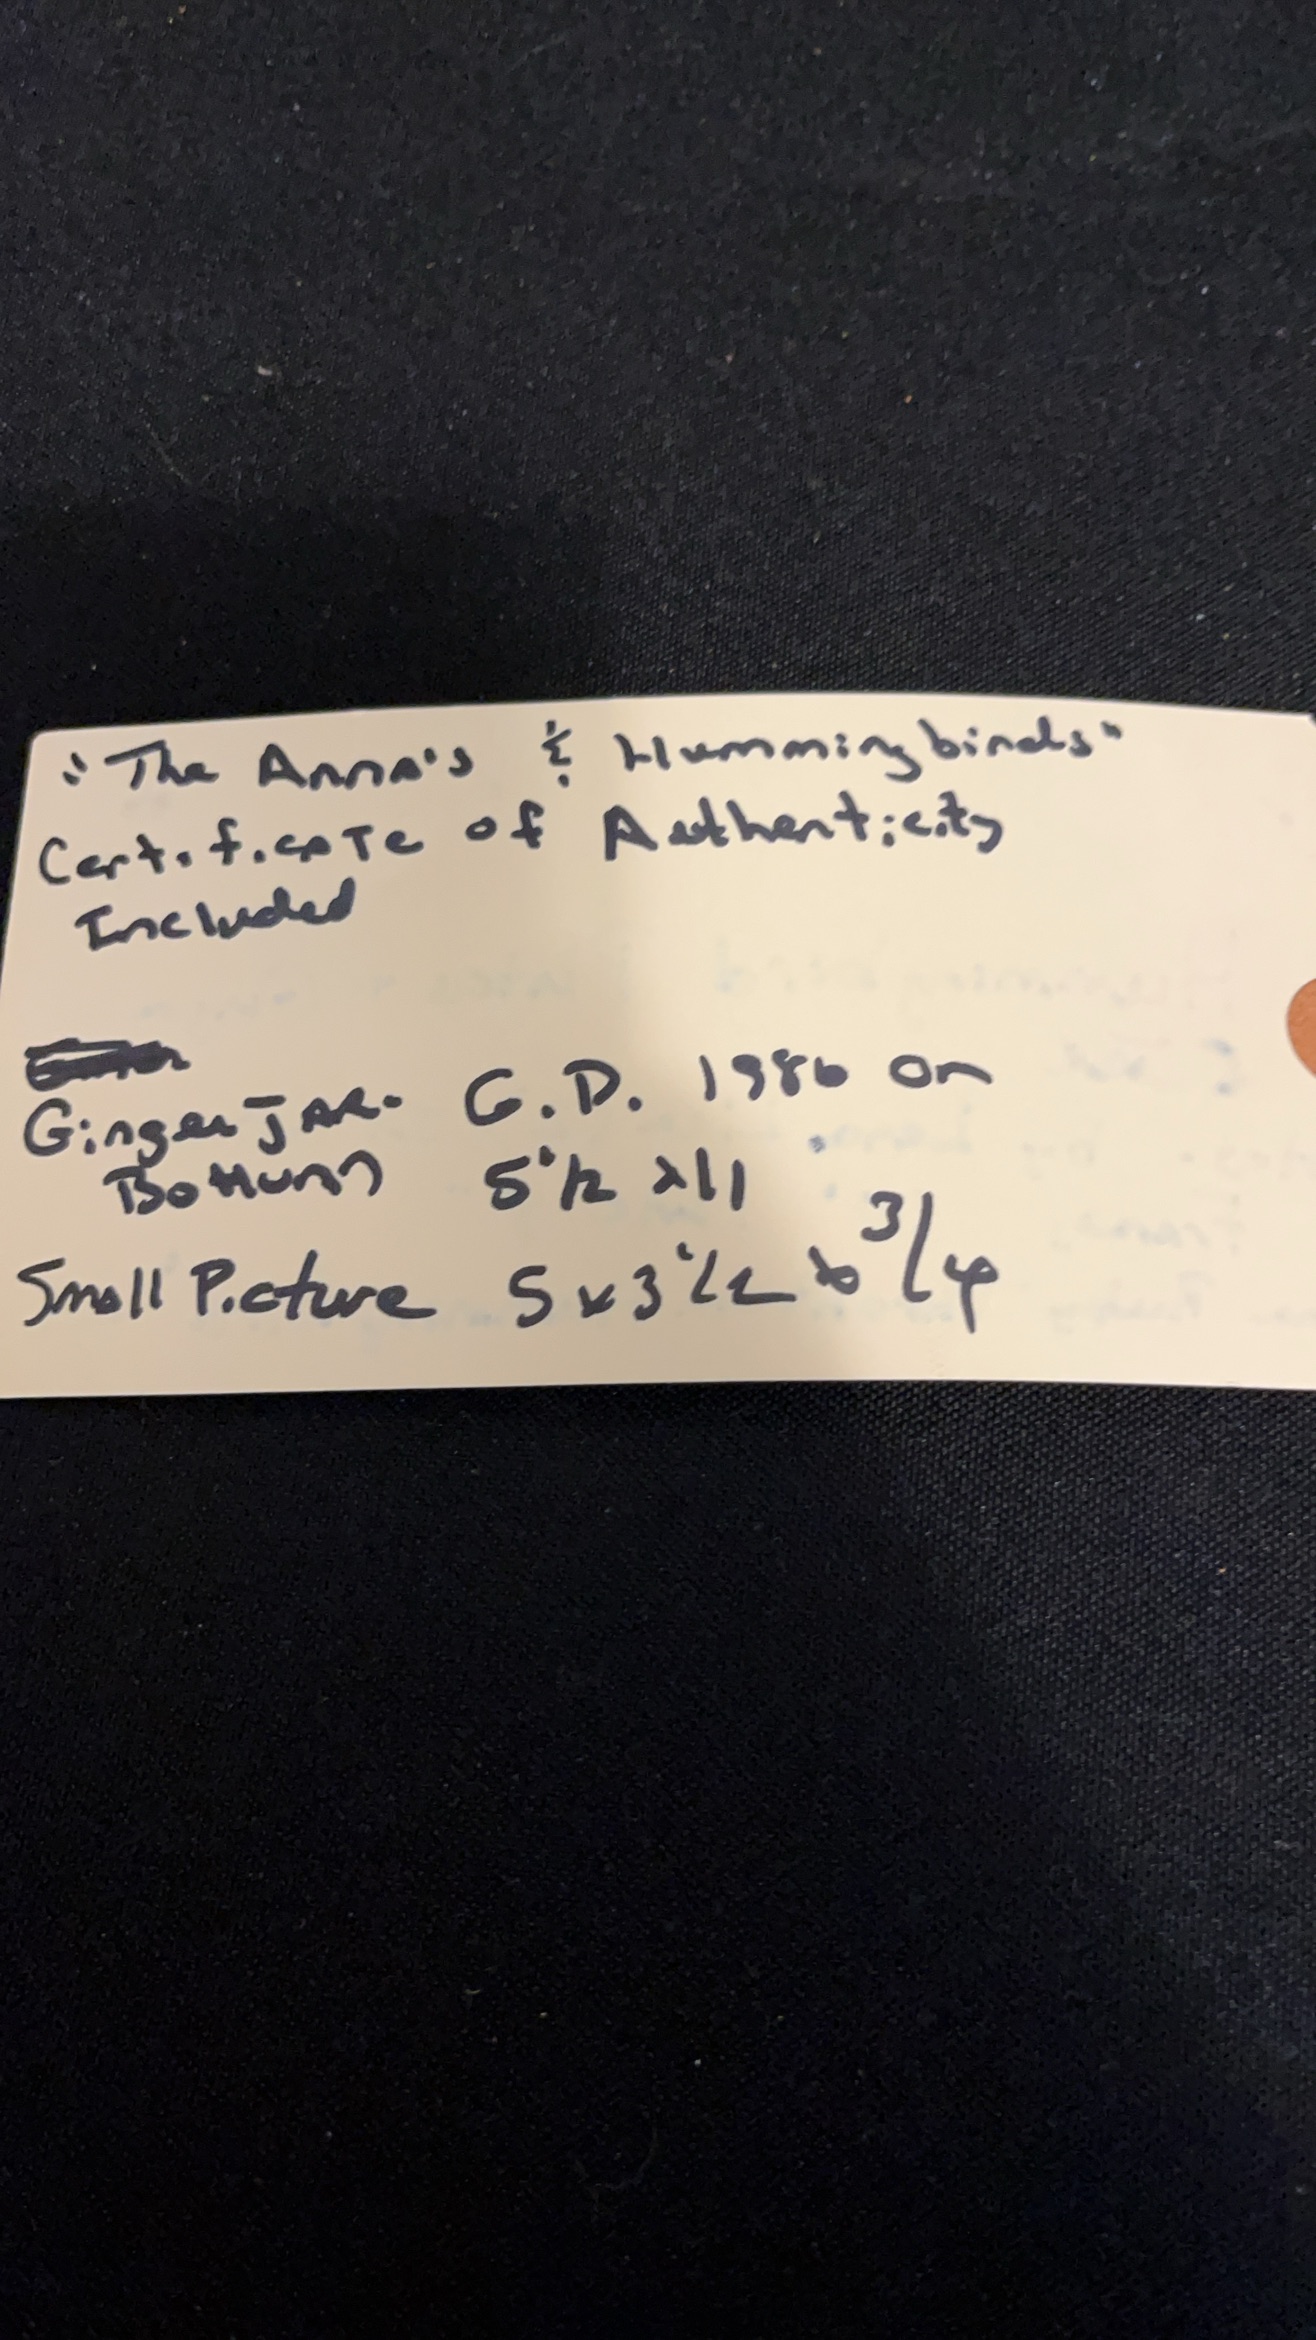 "The Anna's & Hummingbirds"
Certificate of Authenticity
Included
Ginger JAR. G.D. 1986 on
Bottum 5 1/2 x 11
Small Picture 5 x 3 1/2 to 3/4